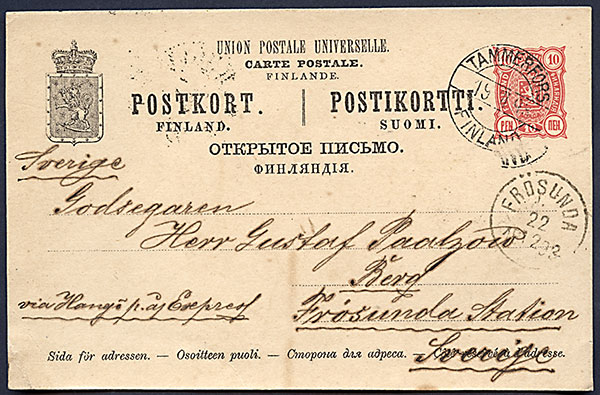 UNION POSTALE UNIVERSELLE.
CARTE POSTALE.
FINLANDE.
POSTKORT. POSTIKORTTI.
FINLAND. SUOMI.
ОТКРЫТОЕ ПИСЬМО.
ФИНЛЯНДІЯ.
10
PEN 10 ПЕН
TAMMERFORS
19
FINLAND
FRÖSUNDA
22
Sverige
Godsegaren
Herr Gustaf Paalzow
Berg
via Hangö p. ås Express
Frösunda Station
Sverige
Sida för adressen. — Osoitteen puoli. — Сторона для адреса. — l'adresse.